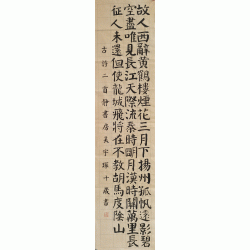 故人西辭黃鶴樓煙花三月下揚州孤帆遠影碧
空盡唯見長江天際流秦時明月漢時關萬里長
征人未還但使龍城飛將在不教胡馬度陰山
古詩二首靜書房天宇十歲書